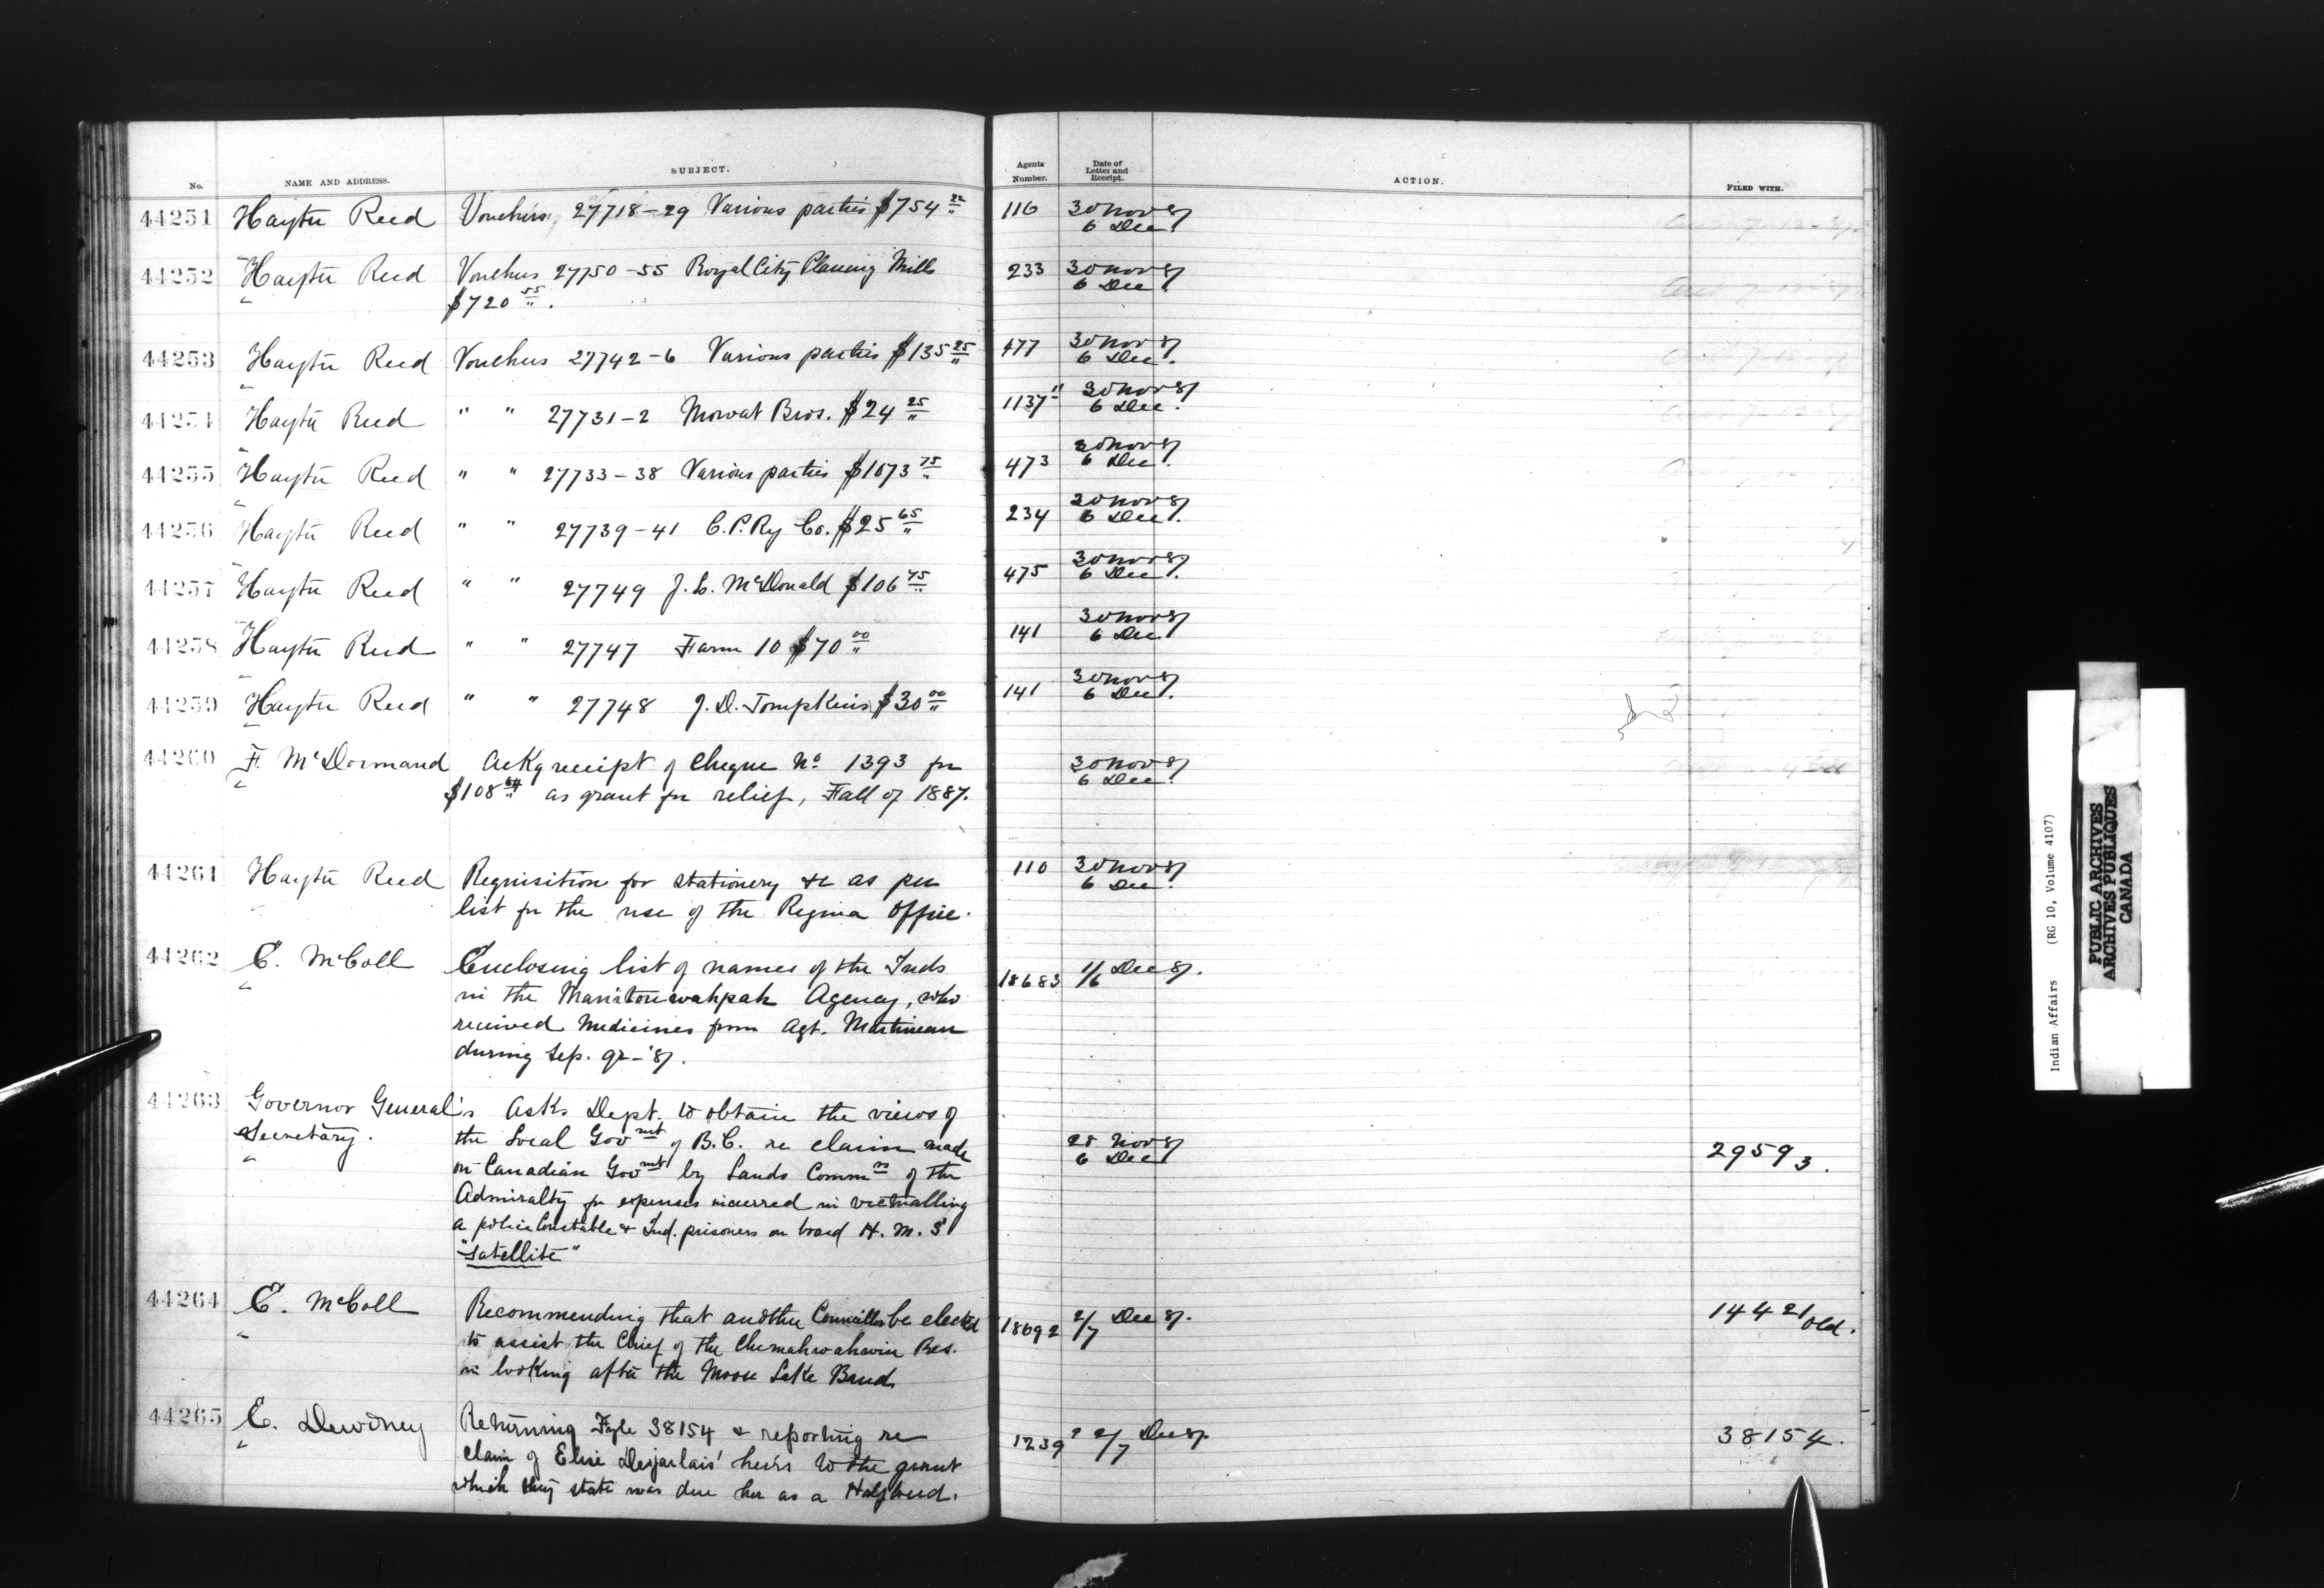 No. NAME AND ADDRESS. SUBJECT. Agents Number. Date of Letter and Receipt. ACTION. FILED WITH.
44251 Hayter Reed Vouchers 27718-29 Various parties $754 22/" 116 30 Nov 87
6 Dec.
44252 Hayter Reed Vouchers 27750-55 Royal City Planing Mills 233 30 Nov 87
" $720 55/". 6 Dec.
44253 Hayter Reed Vouchers 27742-6 Various parties $135 25/" 477 30 Nov 87
" 6 Dec.
44254 Hayter Reed " " 27731-2 Mowat Bros. $24 25/" 1137" 30 Nov 87
" 6 Dec.
44255 Hayter Reed " " 27733-38 Various parties $1073 75/" 473 30 Nov 87
" 6 Dec.
44256 Hayter Reed " " 27739-41 C.P.Ry Co. $25 65/" 234 30 Nov 87
" 6 Dec.
44257 Hayter Reed " " 27749 J. L. McDonald $106 75/" 475 30 Nov 87
" 6 Dec.
44258 Hayter Reed " " 27747 Farm 10 $70 00/" 141 30 Nov 87
" 6 Dec
44259 Hayter Reed " " 27748 J. D. Tompkins $30 00/" 141 30 Nov 87
" 6 Dec.
44260 F. McDormand Ackg receipt of Cheque No 1393 for 30 Nov 87
" $108 64/" as grant for relief, Fall of 1887. 6 Dec.
44261 Hayter Reed Requisition for stationery &c as per 110 30 Nov 87
" list for the use of the Regina Office. 6 Dec.
44262 E. McColl Enclosing list of names of the Inds 18683 1/6 Dec 87.
" in the Manitouwahpah Agency, who
received Medicines from Agt. Martineau
during Sep. qr-'87.
44263 Governor General's Asks Dept. to obtain the views of
Secretary. the Local Govmt of B.C. re claim made 28 Nov 87 29593.
" on Canadian Govmt by Lords Commrs of the 6 Dec
Admiralty for expenses incurred in victualling
a police Constable & Ind. prisoners on board H.M.S
"Satellite"
44264 E. McColl Recommending that another Councillor be elected 18692 2/7 Dec 87. 14421 Old.
" to assist the Chief of the Chemahwahwin Res.
in looking after the Moose Lake Band
44265 E. Dewdney Returning Fyle 38154 & reporting re 1239 2/7 Dec 87 38154.
" claim of Elise Desjarlais' heirs to the grant
which they state was due her as a Halfbreed.
Indian Affairs (RG 10, Volume 4107)
PUBLIC ARCHIVES
ARCHIVES PUBLIQUES
CANADA